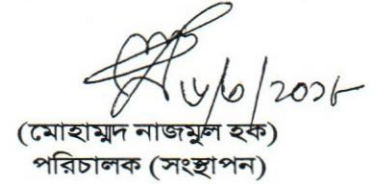 ৬/৩/২০১৮
(মোহাম্মদ নাজমুল হক)
পরিচালক (সংস্থাপন)